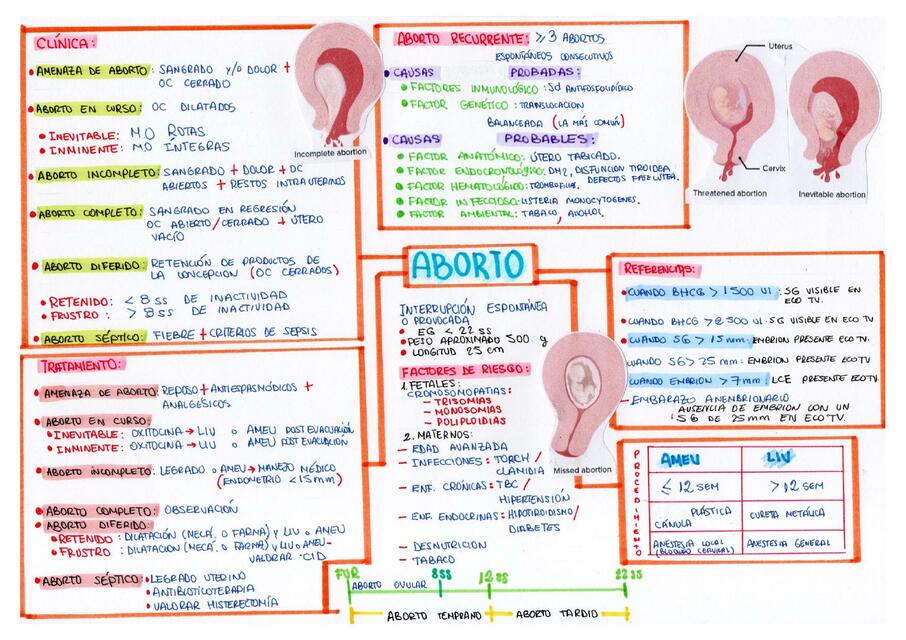 CLÍNICA:
• AMENAZA DE ABORTO: SANGRADO Y/O DOLOR +
OC CERRADO
• ABORTO EN CURSO: OC DILATADOS
• INEVITABLE: M.O ROTAS
• INMINENTE: MO INTEGRAS
• ABORTO INCOMPLETO: SANGRADO + DOLOR + OC
ABIERTOS + RESTOS INTRAUTERINOS
• ABORTO COMPLETO: SANGRADO EN REGRESIÓN
OC ABIERTO/CERRADO + UTERO
VACÍO
• ABORTO DIFERIDO: RETENCIÓN DE PRODUCTOS DE
LA CONCEPCION (OC CERRADOS)
• RETENIDO: < 8 SS DE INACTIVIDAD
• FRUSTRO: > 8 SS DE INACTIVIDAD
• ABORTO SÉPTICO: FIEBRE + CRITERIOS DE SEPSIS
Incomplete abortion
ABORTO RECURRENTE: ≥ 3 ABORTOS
ESPONTÁNEOS CONSECUTIVOS
• CAUSAS PROBADAS:
• FACTORES INMUNOLÓGICO: Sd ANTIFOSFOLIPÍDICO
• FACTOR GENÉTICO: TRANSLOCACION
BALANCEADA (LA MÁS COMÚN)
• CAUSAS PROBABLES:
• FACTOR ANATÓMICO: ÚTERO TABICADO.
• FACTOR ENDOCRONTOLÓGICO: DM2, DISFUNCION TIROIDEA
DEFECTOS FASE LUTEA.
• FACTOR HEMATOLÓGICO: TROMBOFILIA.
• FACTOR INFECCIOSO: LISTERIA MONOCYTOGENES.
• FACTOR AMBIENTAL: TABACO, ALCOHOL.
Uterus
Cervix
Threatened abortion
Inevitable abortion
ABORTO
INTERRUPCIÓN ESPONTÁNEA
O PROVOCADA
• EG < 22 SS
• PESO APROXIMADO 500 g
• LONGITUD 25 cm
FACTORES DE RIESGO:
1. FETALES:
CROMOSONOPATIAS:
– TRISOMIAS
– MONOSOMIAS
– POLIPLOIDIAS
2. MATERNOS:
– EDAD AVANZADA
– INFECCIONES: TORCH/
CLAMIDIA
– ENF. CRÓNICAS: TBC/
HIPERTENSIÓN
– ENF. ENDOCRINAS: HIPOTIROIDISMO/
DIABETES
– DESNUTRICION
– TABACO
Missed abortion
REFERENCIAS:
• CUANDO BHCG > 1500 UI: SG VISIBLE EN
ECO TV.
• CUANDO BHCG > 2500 UI: SG VISIBLE EN ECO TV
• CUANDO SG > 15 mm: EMBRION PRESENTE ECO TV.
CUANDO SG > 25 mm: EMBRION PRESENTE ECO TV
CUANDO EMBRION > 7mm: LCE PRESENTE ECO TV.
– EMBARAZO ANENBRIONARIO
AUSENCIA DE EMBRION CON UN
SG DE 25 mm EN ECO TV.
TRATAMIENTO:
• AMENAZA DE ABORTO: REPOSO + ANTIESPASMÓDICOS +
ANALGÉSICOS
• ABORTO EN CURSO:
• INEVITABLE: OXITOCINA → LIU O AMEU POST EVACUACIÓN
• INMINENTE: OXITOCINA → LIU O AMEU POST EVACUACIÓN
• ABORTO INCOMPLETO: LEGRADO O AMEU → MANEJO MÉDICO
(ENDOMETRIO < 15mm)
• ABORTO COMPLETO: OBSERVACIÓN
• ABORTO DIFERIDO:
• RETENIDO: DILATACIÓN (MECÁ. O FARMA) Y LIU O AMEU
• FRUSTRO: DILATACION (MECÁ. O FARMA) Y LIU O AMEU –
VALORAR CID
• ABORTO SÉPTICO: • LEGRADO UTERINO
• ANTIBIOTICOTERAPIA
• VALORAR HISTERECTOMÍA
PROCEDIMIENTO
AMEU LIU
≤ 12 SEM > 12 SEM
CÁNULA PLÁSTICA CURETA METÁLICA
ANESTESIA LOCAL (BLOQUEO CERVICAL) ANESTESIA GENERAL
FUR 8SS 12 SS 22 SS
ABORTO OVULAR
ABORTO TEMPRANO ABORTO TARDIO